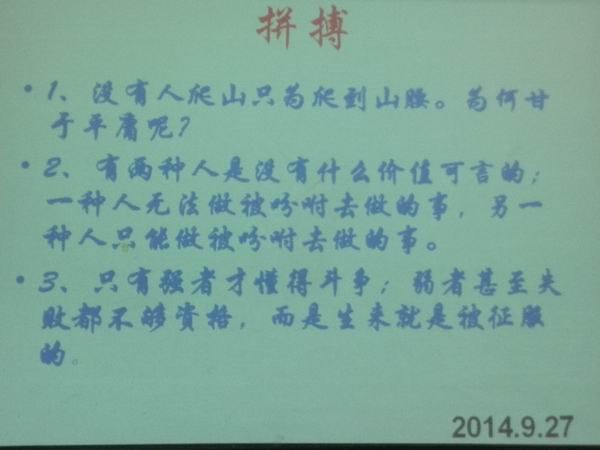 拼搏
• 1、没有人爬山只为爬到山腰。为何甘
于平庸呢？
• 2、有两种人是没有什么价值可言的；
一种人无法做被吩咐去做的事，另一
种人只能做被吩咐去做的事。
• 3、只有强者才懂得斗争；弱者甚至失
败都不够资格，而是生来就是被征服
的。
2014.9.27